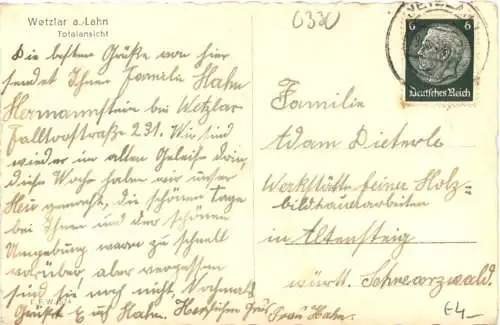 Wetzlar a. Lahn
Totalansicht
Die besten Grüße von hier
sendet Ihnen Familie Hahn
Hermannstein bei Wetzlar
Falltorstraße 231. Wir sind
wieder im alten Geleise drin,
diese Woche haben wir unser
Heu gemacht, die schönen Tage
bei Ihnen und der schönen
Umgebung waren zu schnell
vorüber aber vergessen
sind sie noch nicht. Nochmals
Grüßt E. u. Hahn. Herzlichen Gruß
Frau Hahn.
0330
WETZLAR
6 6
Deutsches Reich
Familie
Adam Dieterle
Werkstätte feiner Holz-
bildhauerarbeiten
in Altensteig
württ. Schwarzwald
E4